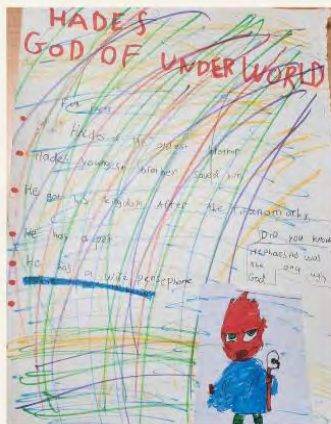 HADES
GOD OF UNDERWORLD
Fun facts
Hades is the oldest brother
Hades youngest brother saved him
He got his kingdom After the
He has a
He has a wife Persephone
DID you know
Hephaestus was
the only ugly
God